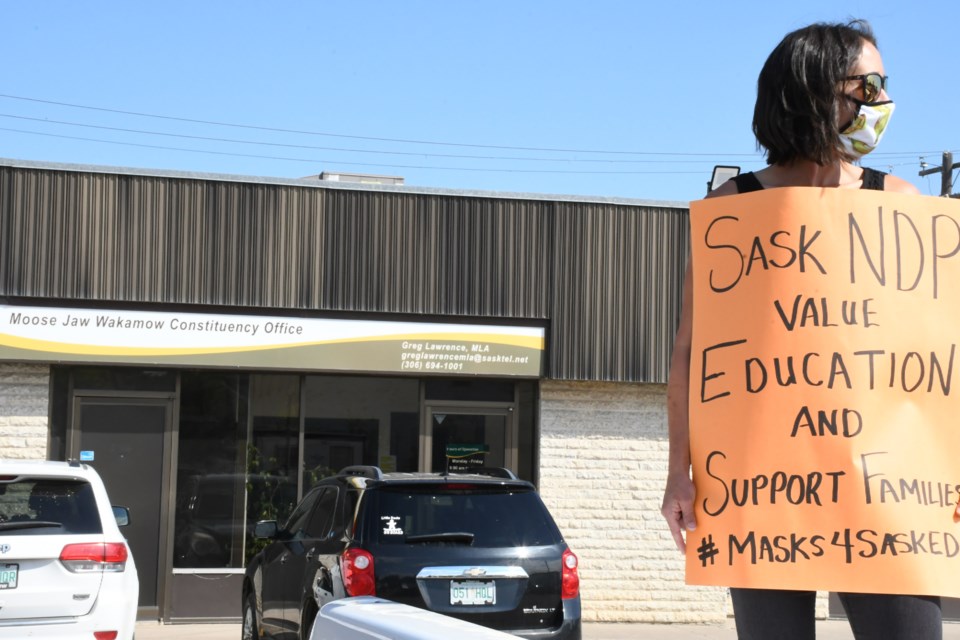 Moose Jaw Wakamow Constituency Office
Greg Lawrence, MLA
greglawrencemla@sasktel.net
(306) 694-1001
Monday - Friday
SASK NDP
VALUE
EDUCATION
AND
SUPPORT FAMILIES
#MASKS4SASKED
051 HQL